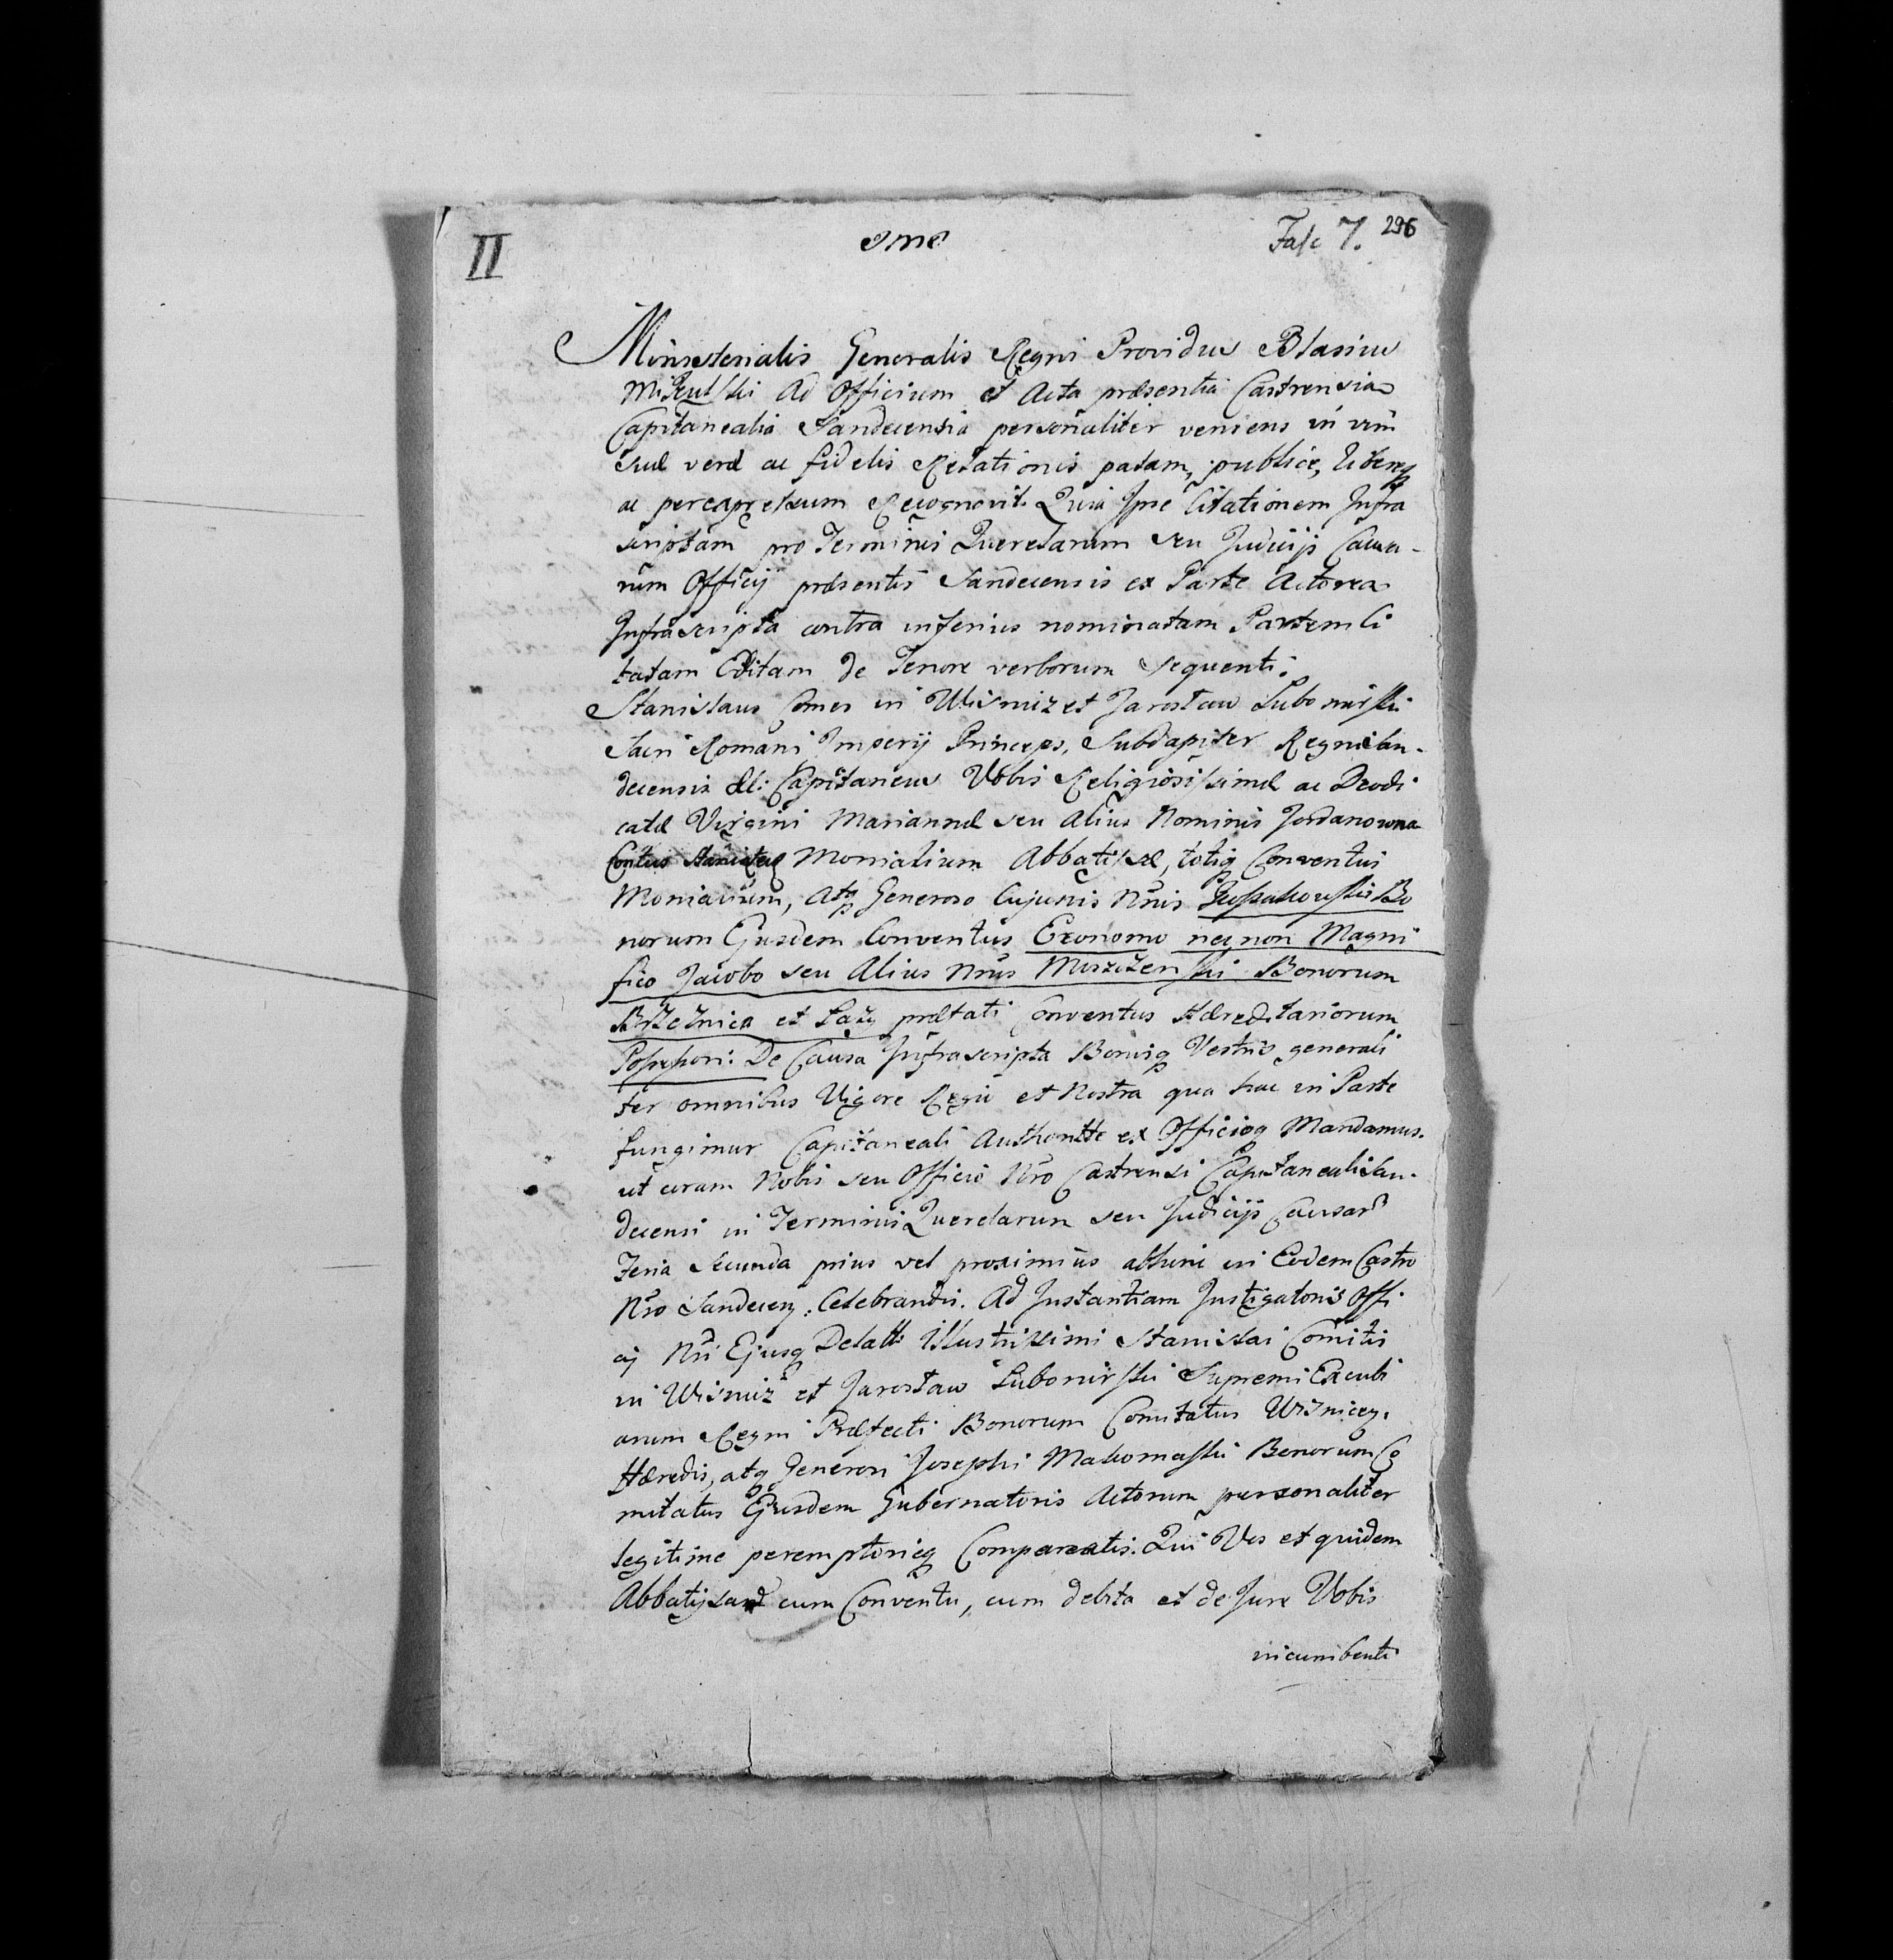 II
Fasc 7. 296
Ministerialis Generalis Regni Providus Blasius
Mikulski Ad Officium et Acta præsentia Castrensia
Capitanealia Sandecensia personaliter veniens in vim
suæ veræ ac fidelis Relationis palam, publice, libereq
ac per expressum Recognovit. Quia Ipse Citationem Infra
scriptam pro Terminis Querelarum seu Judicijs Causa-
rum Officij præsentis Sandecensis ex Parte Actorea
Infrascripta contra inferius nominatam Partem Ci
tatam Editam de Tenore verborum sequenti.
Stanislaus Comes in Wisnicz et Jaroslaw Lubomirski
Sacri Romani Imperij Princeps, Subdapifer Regni San-
decensis &c: Capitaneus Vobis Religiosissimæ ac Deodi
catæ Virgini Mariannæ seu Alius Nominis Jordanowna
Contus Staniątec Monialium Abbatissæ, totiq Conventui
Monialium, Atq Generoso Cujusvis Nnis Bo
norum Ejusdem Conventus Economo nec non Magni
fico Jacobo seu Alius Nnis Bonorum
Brzeznica et Łazy prætati Conventus Hæreditariorum
Possessori: De Causa Infrascripta Bonisq Vestris generali
ter omnibus Vigore Regia et Nostra qua hac in Parte
fungimur Capitaneali Authortte ex Officioq Mandamus.
ut coram Nobis seu Officio Nro Castrensi Capitaneali San-
decensi in Terminis Querelarum seu Judicijs Causar
Feria Secunda prius vel proximius abhinc in Eodem Castro
Nro Sandecen: Celebrandis. Ad Instantiam Instigatoris Offi
cij Nri Ejusq Delatt Illustrissimi Stanislai Comitis
in Wisnicz et Jaroslaw Lubomirski Supremi Excubi
arum Regni Præfecti Bonorum Comitatus Wisnicen.
Hæredis, atq Generosi Josephi Makomaski Bonorum Co
mitatus Ejusdem Gubernatoris Actorum personaliter
legitime peremptorieq Compareatis. Qui Vos et quidem
Abbatissam cum Conventu, cum debita et de Jure Vobis
incumbenti